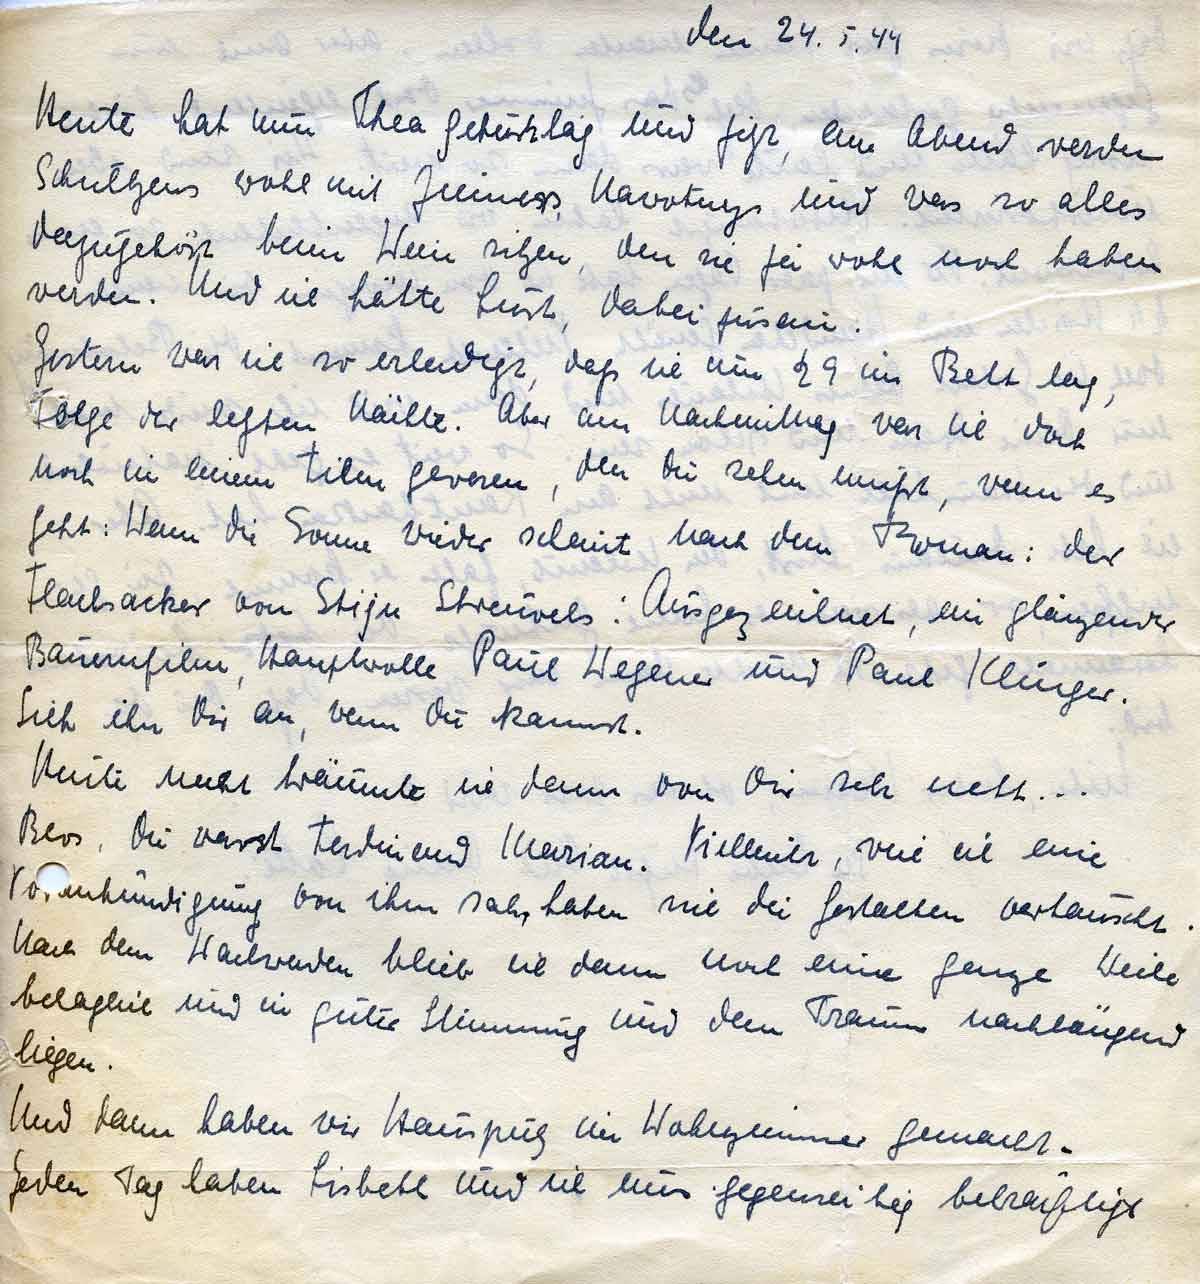 den 24. 5. 44
Heute hat nun Thea Geburtstag und jetzt, am Abend werden
Schultzens wohl mit Navotnys und was so alles
dazugehört beim Wein sitzen, den sie ja wohl noch haben
werden. Und ich hätte Lust, dabei zusein.
Gestern war ich so erledigt, daß ich um ½ 9 im Bett lag,
Folge der letzten Nächte. Aber am Nachmittag war ich doch
noch in einem Film gewesen, den Du sehen mußt, wenn es
geht: Wenn die Sonne wieder scheint nach dem Roman: der
Flachsacker von Stijn Streuvels: Ausgezeichnet, ein glänzender
Bauernfilm, Hauptrolle Paul Wegener und Paul Klinger.
Sieh ihn Dir an, wenn Du kannst.
Heute nacht träumte ich dann von Dir sehr nett...
Blos, Du warst Ferdinand Marian. Vielleicht, weil ich eine
Vorankündigung von ihm sah, haben sich die Gestalten vertauscht.
Nach dem Wachwerden blieb ich dann noch eine ganze Weile
behaglich und in guter Stimmung und dem Traum nachhängend
liegen.
Und dann haben wir Hausputz im Wohnzimmer gemacht.
Jeden Tag haben Lisbeth und ich uns gegenseitig bekräftigt